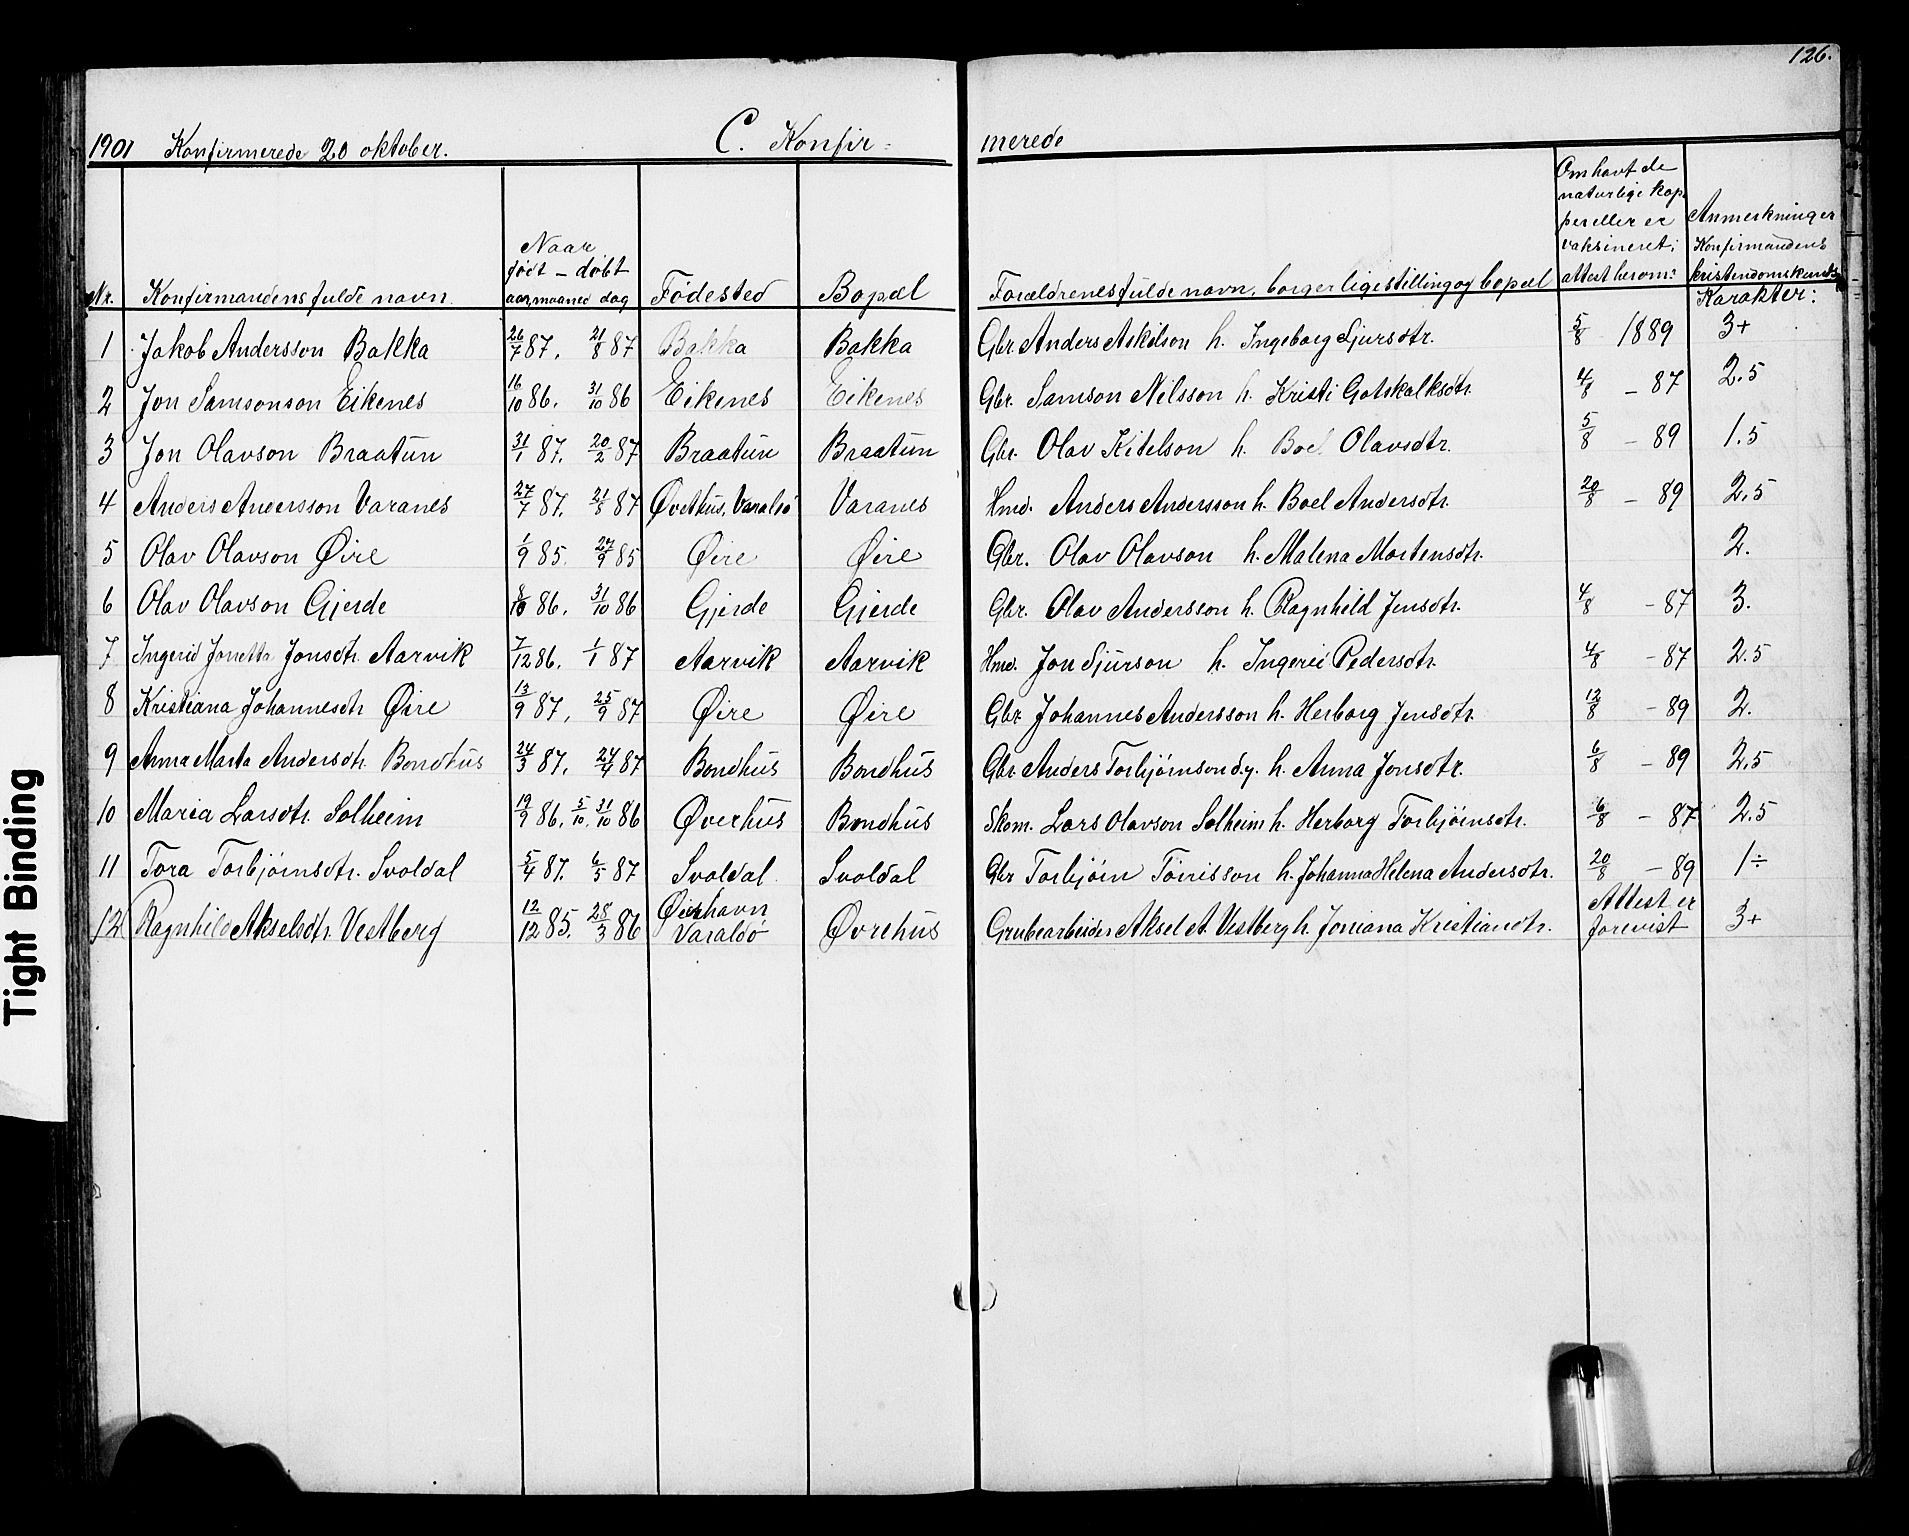 126.
1901 Konfirmerede 20 oktober. C. Konfir= merede
Nr. Konfirmandens fulde navn. Naar født – døbt aar, maaned dag Fødested Bopæl Forældrenes fulde navn, borgerlige stilling og bopæl Om havt de naturlige kopper eller er vaksineret; attest herom: Anmerkninger Konfirmandens kristendomskunds. Karakter:
1 Jakob Andersson Bakka 26/7 87. 21/8 87 Bakka Bakka Gbr. Anders Askilson h. Ingeborg Sjursdtr. 5/8 1889 3+
2 Jon Samsonson Eikenes 16/10 86. 31/10 86 Eikenes Eikenes Gbr. Samson Nilsson h. Kristi Gotskalksdtr. 4/8 – 87 2.5
3 Jon Olavson Braatun 31/1 87. 20/2 87 Braatun Braatun Gbr. Olav Kitelson h. Boel Olavsdtr. 5/8 – 89 1.5
4 Anders Andersson Varanes 27/7 87. 21/8 87 Øvethus, Varalsø Varanes Hmd. Anders Andersson h. Boel Andersdtr. 20/8 – 89 2,5
5 Olav Olavson Øire 1/9 85. 27/9 85 Øire Øire Gbr. Olav Olavson h. Malena Mortensdtr. 2.
6 Olav Olavson Gjerde 8/10 86. 31/10 86 Gjerde Gjerde Gbr. Olav Andersson h. Ragnhild Jensdtr. 4/8 – 87 3.
7 Ingerid Jonetta Jonsdtr. Aarvik 7/12 86. 1/1 87 Aarvik Aarvik Hmd. Jon Sjurson h. Ingerei Pedersdtr. 4/8 – 87 2.5
8 Kristiana Johannesdtr Øire 13/9 87, 25/9 87 Øire Øire Gbr. Johannes Andersson h. Herborg Jensdtr. 12/8 – 89 2.
9 Anna Marta Andersdtr. Bondhus 24/3 87. 24/4 87 Bondhus Bondhus Gbr. Anders Torbjørnson d.y. h. Anna Jonsdtr. 6/8 – 89 2,5
10 Maria Larsdtr. Solheim 19/9 86. 5/10. 31/10 86 Øverhus Bondhus Skom. Lars Olavson Solheim h. Herborg Torbjørnsdtr. 6/8 – 87 2.5
11 Tora Torbjørnsdtr. Svoldal 5/4 87. 6/5 87 Svoldal. Svoldal Gbr Torbjørn Tørrisson h. Johanna Helena Andersdtr. 20/8 – 89 1÷
12 Ragnhild Akselsdtr. Vestberg 12/12 85. 28/3 86 Varaldø Øvrehus Grubearbeider Aksel A. Vestberg h. Joniana Kristiandtr. Attest er forevist 3+
Tight Binding